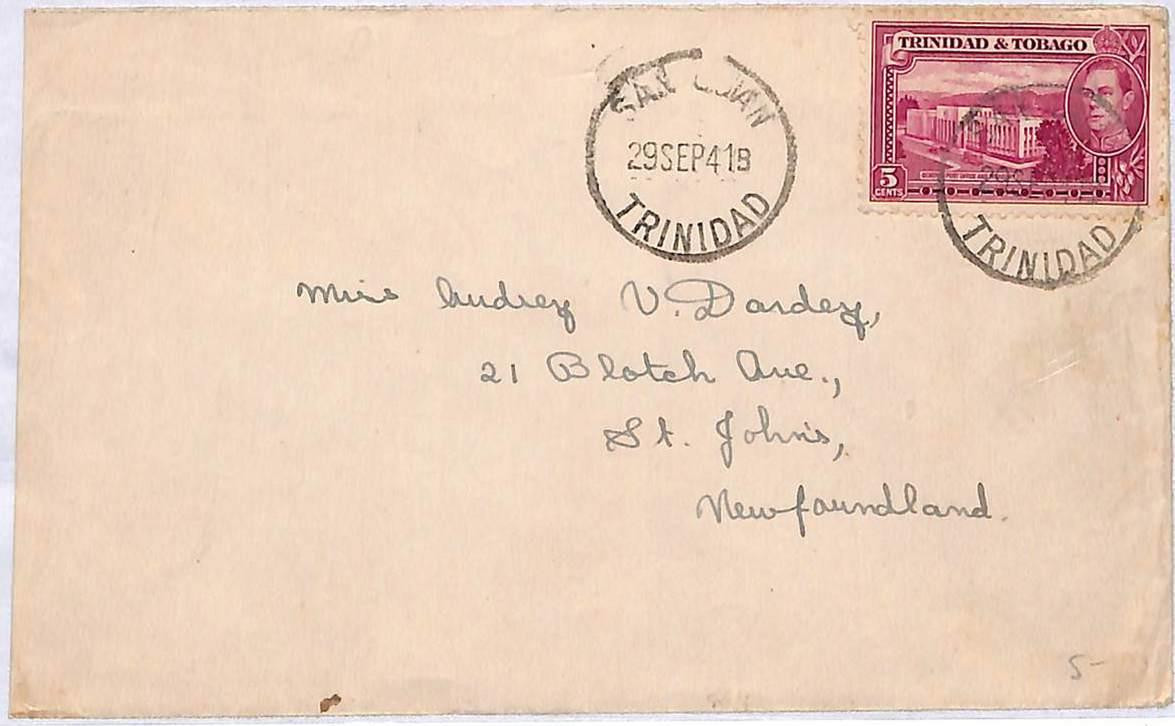 TRINIDAD & TOBAGO
5
CENTS
SAN JUAN
29SEP41B
TRINIDAD
TRINIDAD
Miss Audrey V. Dardey,
21 Blatch Ave.,
St. John's,
Newfoundland.
5-